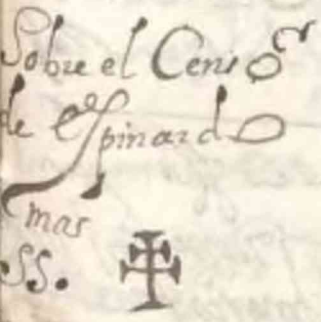 Sobre el Censo
de espinardo
mas
SS.